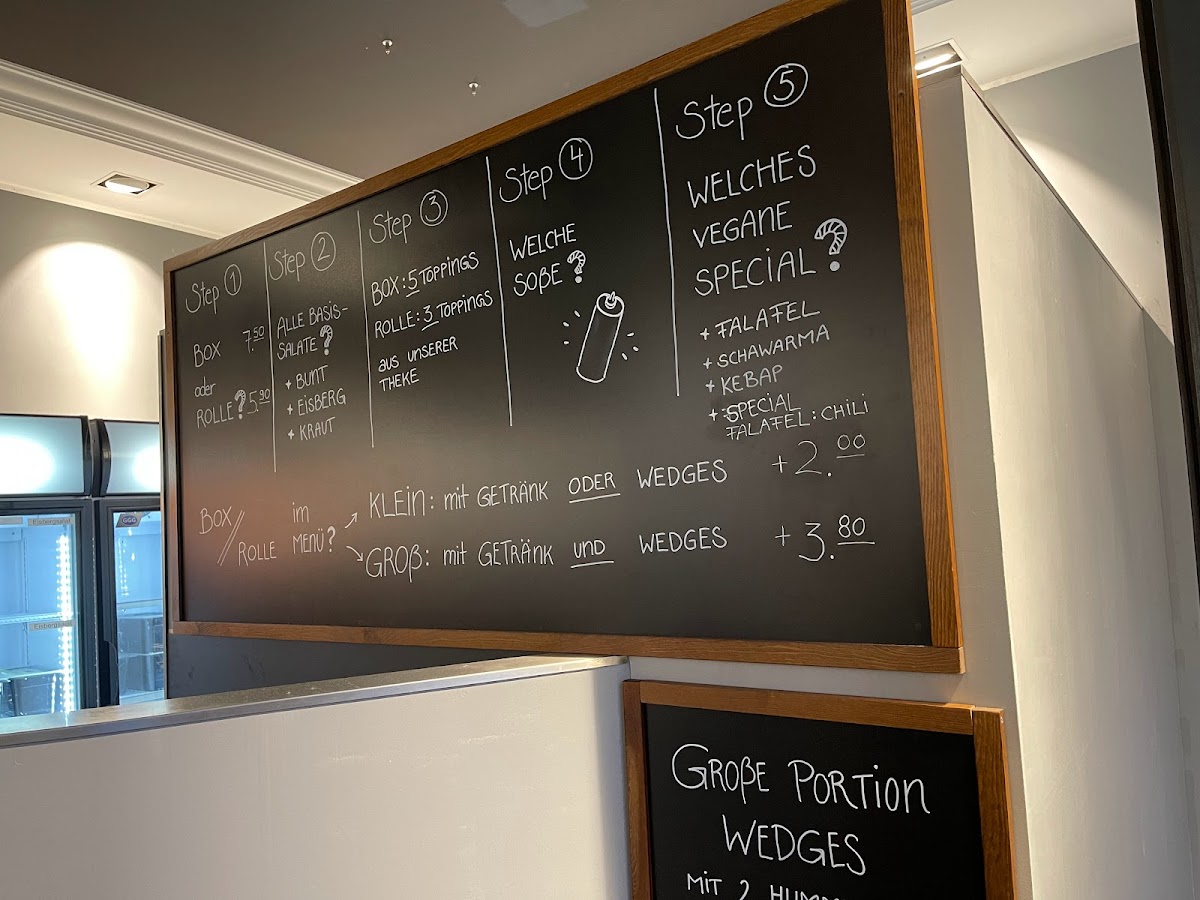 Step 1
BOX 7.50
oder
ROLLE? 5.90
Step 2
ALLE BASIS-
SALATE?
+ BUNT
+ EISBERG
+ KRAUT
Step 3
BOX: 5 TOPPINGS
ROLLE: 3 TOPPINGS
aus unserer
THEKE
Step 4
WELCHE
SOßE?
Step 5
WELCHES
VEGANE
SPECIAL?
+ FALAFEL
+ SCHAWARMA
+ KEBAP
+ SPECIAL
FALAFEL: CHILI
BOX//ROLLE im MENÜ?
KLEIN: mit GETRÄNK ODER WEDGES +2.00
GROß: mit GETRÄNK und WEDGES +3.80
GROßE PORTION
WEDGES
MIT 2